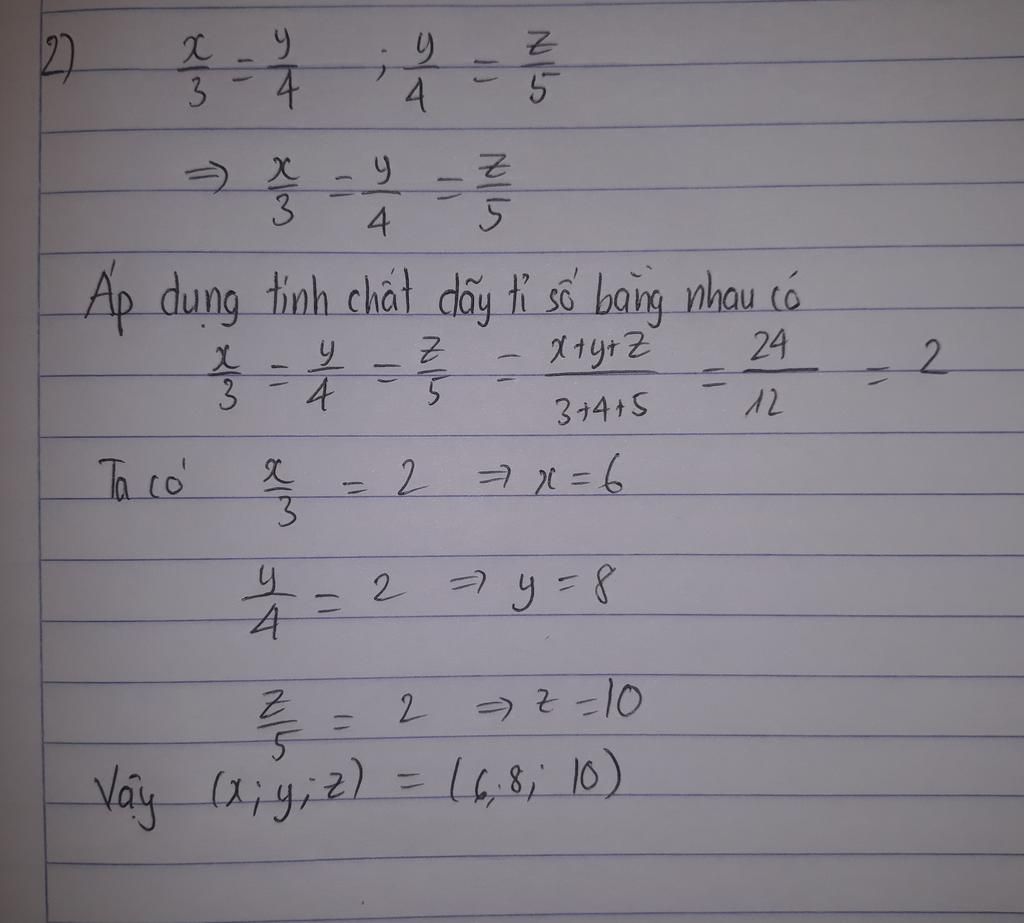 2) x/3 = y/4 ; y/4 = z/5
⇒ x/3 = y/4 = z/5
Áp dụng tính chất dãy tỉ số bằng nhau có
x/3 = y/4 = z/5 = x+y+z/3+4+5 = 24/12 = 2
Ta có x/3 = 2 ⇒ x = 6
y/4 = 2 ⇒ y = 8
z/5 = 2 ⇒ z = 10
Vậy (x; y; z) = (6; 8; 10)